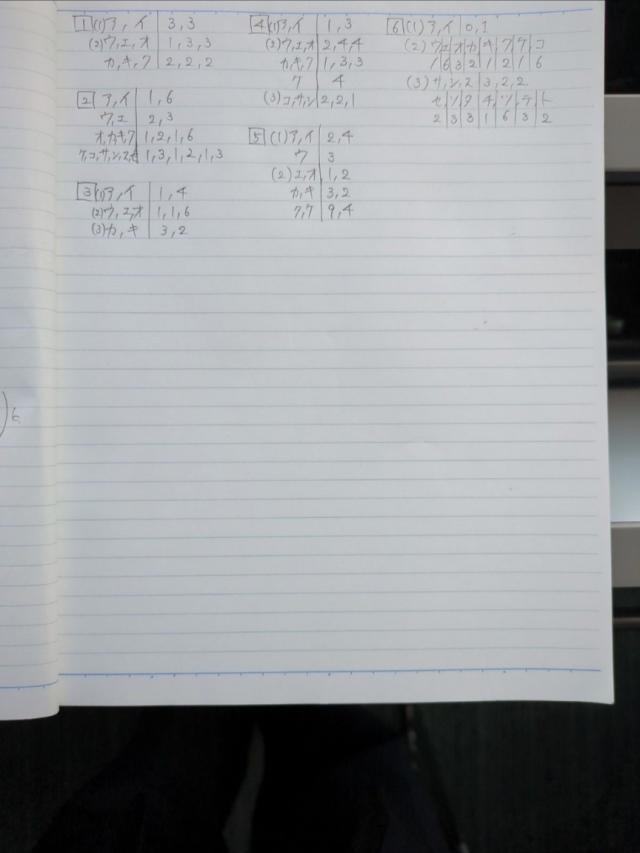 1 (1)ア, イ 3, 3
(2)ウ, エ, オ 1, 3, 3
カ, キ, ク 2, 2, 2
2 ア, イ 1, 6
ウ, エ 2, 3
オ, カ, キ, ク 1, 2, 1, 6
ケ, コ, サ, シ, ス, セ 1, 3, 1, 2, 1, 3
3 (1)ア, イ 1, 4
(2)ウ, エ, オ 1, 1, 6
(3)カ, キ 3, 2
4 (1)ア, イ 1, 3
(2)ウ, エ, オ 2, 4, 4
カ, キ, ク 1, 3, 3
ケ 4
(3)コ, サ, シ 2, 2, 1
5 (1)ア, イ 2, 4
ウ 3
(2)エ, オ 1, 2
カ, キ 3, 2
ク, ケ 9, 4
6 (1)ア, イ 0, 1
(2) ウ エ オ カ キ ク ケ コ
1 6 3 2 1 2 1 6
(3)サ, シ, ス 3, 2, 2
セ ソ タ チ ツ テ ト
2 3 3 1 6 3 2
)6